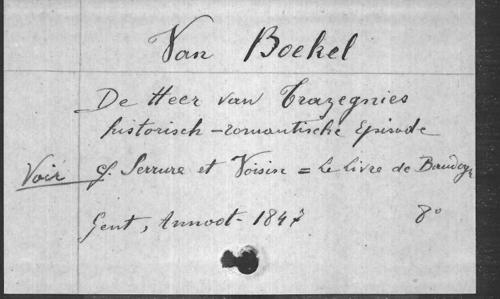 Van Boekel
De Heer van Trazegnies
historisch-romantische Episode
Voir cf. Serrure et Voisin = Le Livre de Baudoyn
Gent, Annoot- 1847 8°